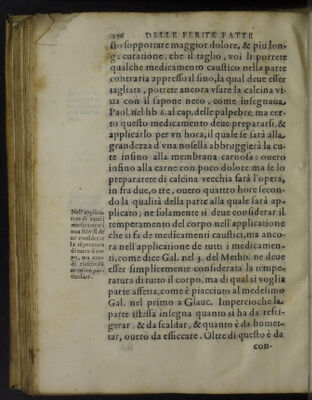 256 DELLE FERITE FATTE
sto sopportare maggior dolore, & piu lon-
ga curatione. che il taglio, voi li porrete
qualche medicamento caustico nella parte
contraria appresso il sino, la qual deue esser
tagliata, potrete ancora vsare la calcina vi-
ua con il sapone nero, come insegnaua
Paol. nel lib 6. al cap. delle palpebre, ma cer-
to questo medicamento deue prepararsi, &
applicarlo per vn'hora, il qual se sarà alla
grandezza d'vna nosella abbruggierà la cu-
te insino alla membrana carnosa: ouero
insino alla carne con poco dolore ma se lo
prepararete di calcina vecchia farà l'opera
in fra due, o tre, ouero quattro hore secon-
do la qualità della parte alla quale sarà ap-
plicato; ne solamente si deue considerar il
temperamento del corpo nell'applicatione
che si fa de medicamenti caustici, ma anco-
ra nell'applicatione de tutti i medicamen-
ti, come dice Gal. nel 3. del Metho. ne deue
esser simplicemente considerata la tempe-
ratura di tutto il corpo, ma di qual si voglia
parte affetta, come è piacciuto al medesimo
Gal. nel primo a Glauc. Impercioche la
parte istessa insegna quanto si ha da refri-
gerar, & da scaldar, & quanto è da humet-
tar, ouero da essiccare. Oltre di questo è da
con-
Nell'applica-
tion di tutti i
medicamenti
non solo si de
ue considerar
la temperatura
di tutto il cor
po, ma anco
di ciascheduna